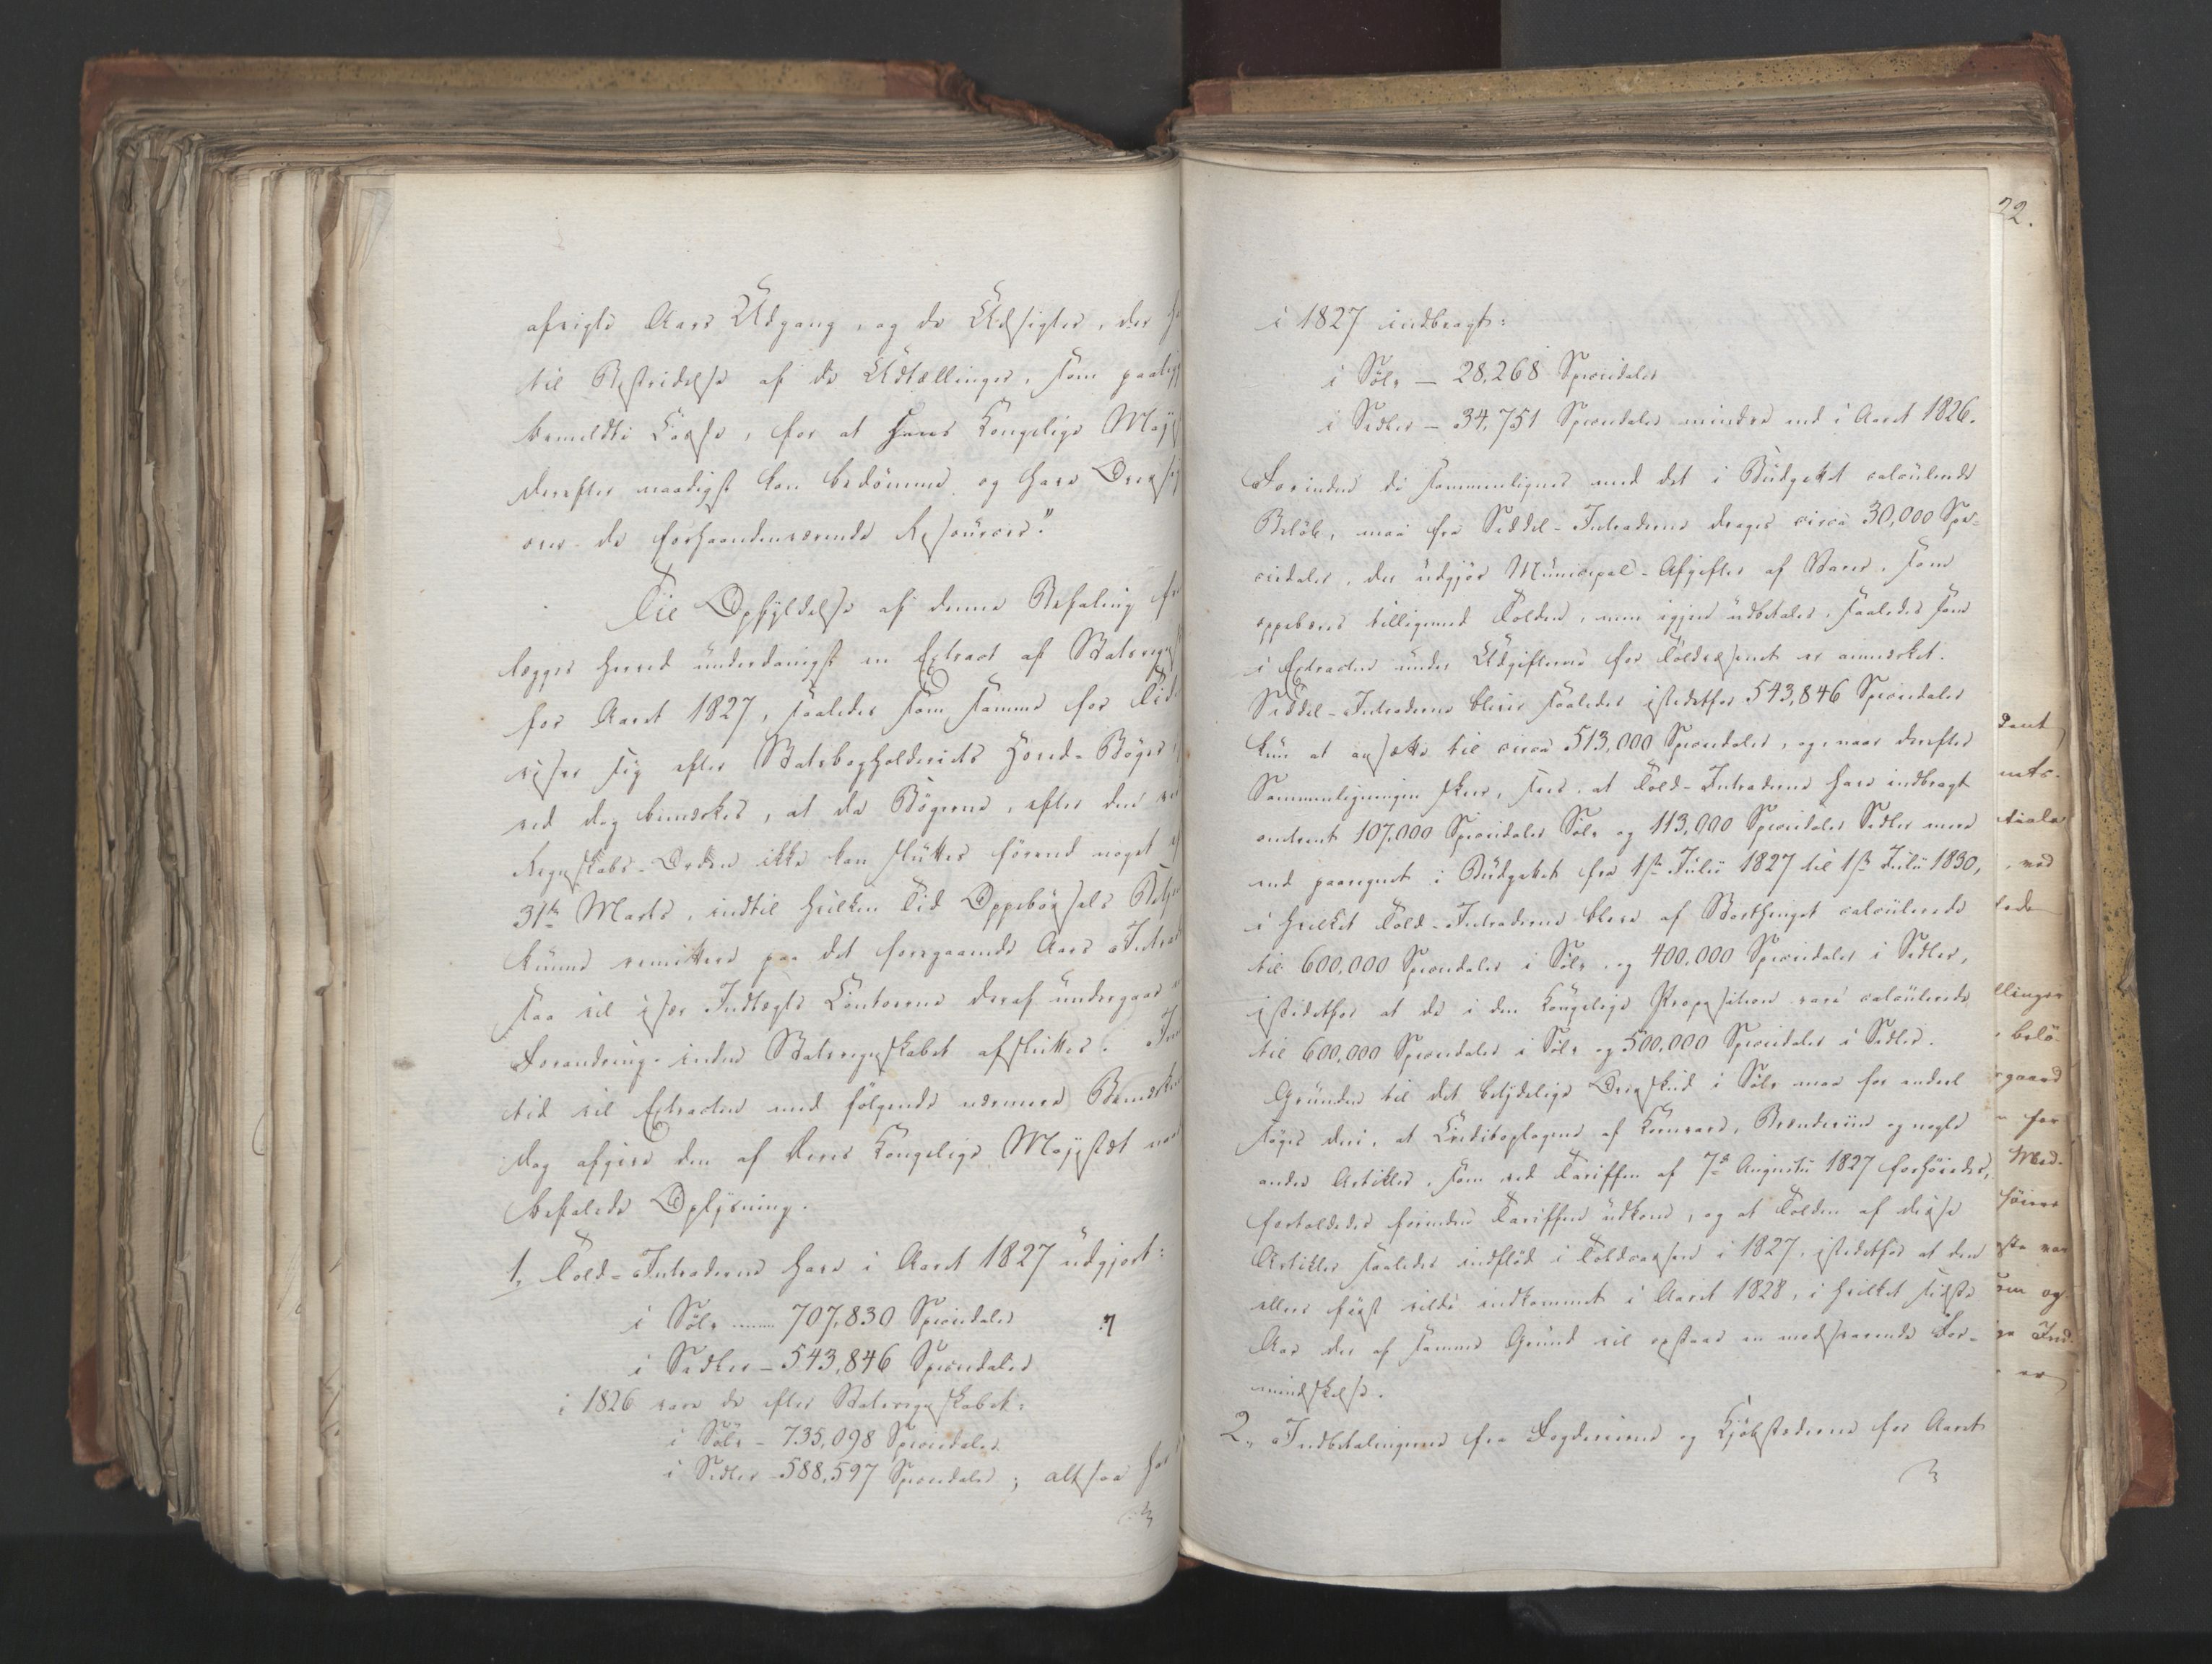 afvigte Aars Udgang, og de Udsigter, der
til Bestridelse af de Udtællinger, som
bemeldte Casse, for at Hans Kongelige
derefter naadigst kan bedømme, og have
over de forhaandenværende Resourcer."
Til Opfyldelse af denne Befaling
lægges herved underdanigst en Extract af
for Aaret 1827, saaledes som samme for
viser sig efter Statsbogholderiets Hoved-Bøger
ved dog bemærkes, at da Bøgerne, efter den
Regnskabs-Orden ikke kan sluttes førend noget
31te Marts, indtil hvilken Tid Oppebørsels
kunne remittere paa det foregaaende Aars
saa vil især Indtægts Contoerne deraf undergaae
Forandring inden Statsregnskabet afsluttes.
tid vil Extracten med følgende nærmere
dog afgive den af Deres Kongelige Majestæt
befalede Oplysning.
1, Told-Intraderne have i Aaret 1827 udgjort:
i Sølv ........ 707,830 Speciedaler
i Sedler - 543,846 Speciedaler
i 1826 vare de efter Statsregnskabet:
i Sølv - 735,098 Speciedaler
i Sedler - 588,597 Speciedaler; altsaa
22.
i 1827 indbragt:
i Sølv - 28,268 Speciedaler
i Sedler - 34,751 Speciedaler mindre end i Aaret 1826.
Forinden de sammenlignes med det i Budgettet calculerede
Beløb, maa fra Seddel-Intraderne drages circa 30,000 Spe-
ciedaler, der udgjør Municipal-Afgifter af Varer, som
oppebæres tilligemed Tolden, men igjen udbetales, saaledes som
i Extracten under Udgifterne for Toldvæsenet er anmærket.
Seddel-Intraderne bliver saaledes istedetfor 543,846 Speciedaler
kun at ansætte til circa 513,000 Speciedaler, og, naar derefter
Sammenligningen skeer, sees, at Told-Intraderne have indbragt
omtrent 107,000 Speciedaler Sølv og 113,000 Speciedaler Sedler mere
end paaregnet i Budgettet fra 1ste Julii 1827 til 1ste Julii 1830,
i hvilket Told-Intraderne bleve af Storthinget calculerede
til 600,000 Speciedaler i Sølv, og 400,000 Speciedaler i Sedler,
istedetfor at de i den Kongelige Proposition vare calculerede
til 600,000 Speciedaler i Sølv og 500,000 Speciedaler i Sedler.
Grunden til det betydelige Overskud i Sølv maa for endeel
søges deri, at Creditoplagene af Kornvare, Brændeviin og nogle
andre Artikler, som ved Tariffen af 7de Augustii 1827 forhøiedes,
fortoldedes forinden Tariffen udkom, og at Tolden af disse
Artikler saaledes indflød i Toldcassen i 1827, istedetfor at den
ellers først vilde indkommet i Aaret 1828, i hvilket sidste
Aar der af samme Grund vil opstaae en modsvarende For-
mindskelse.
2, Indbetalingerne fra Fogderierne og Kjøbstæderne for Aaret